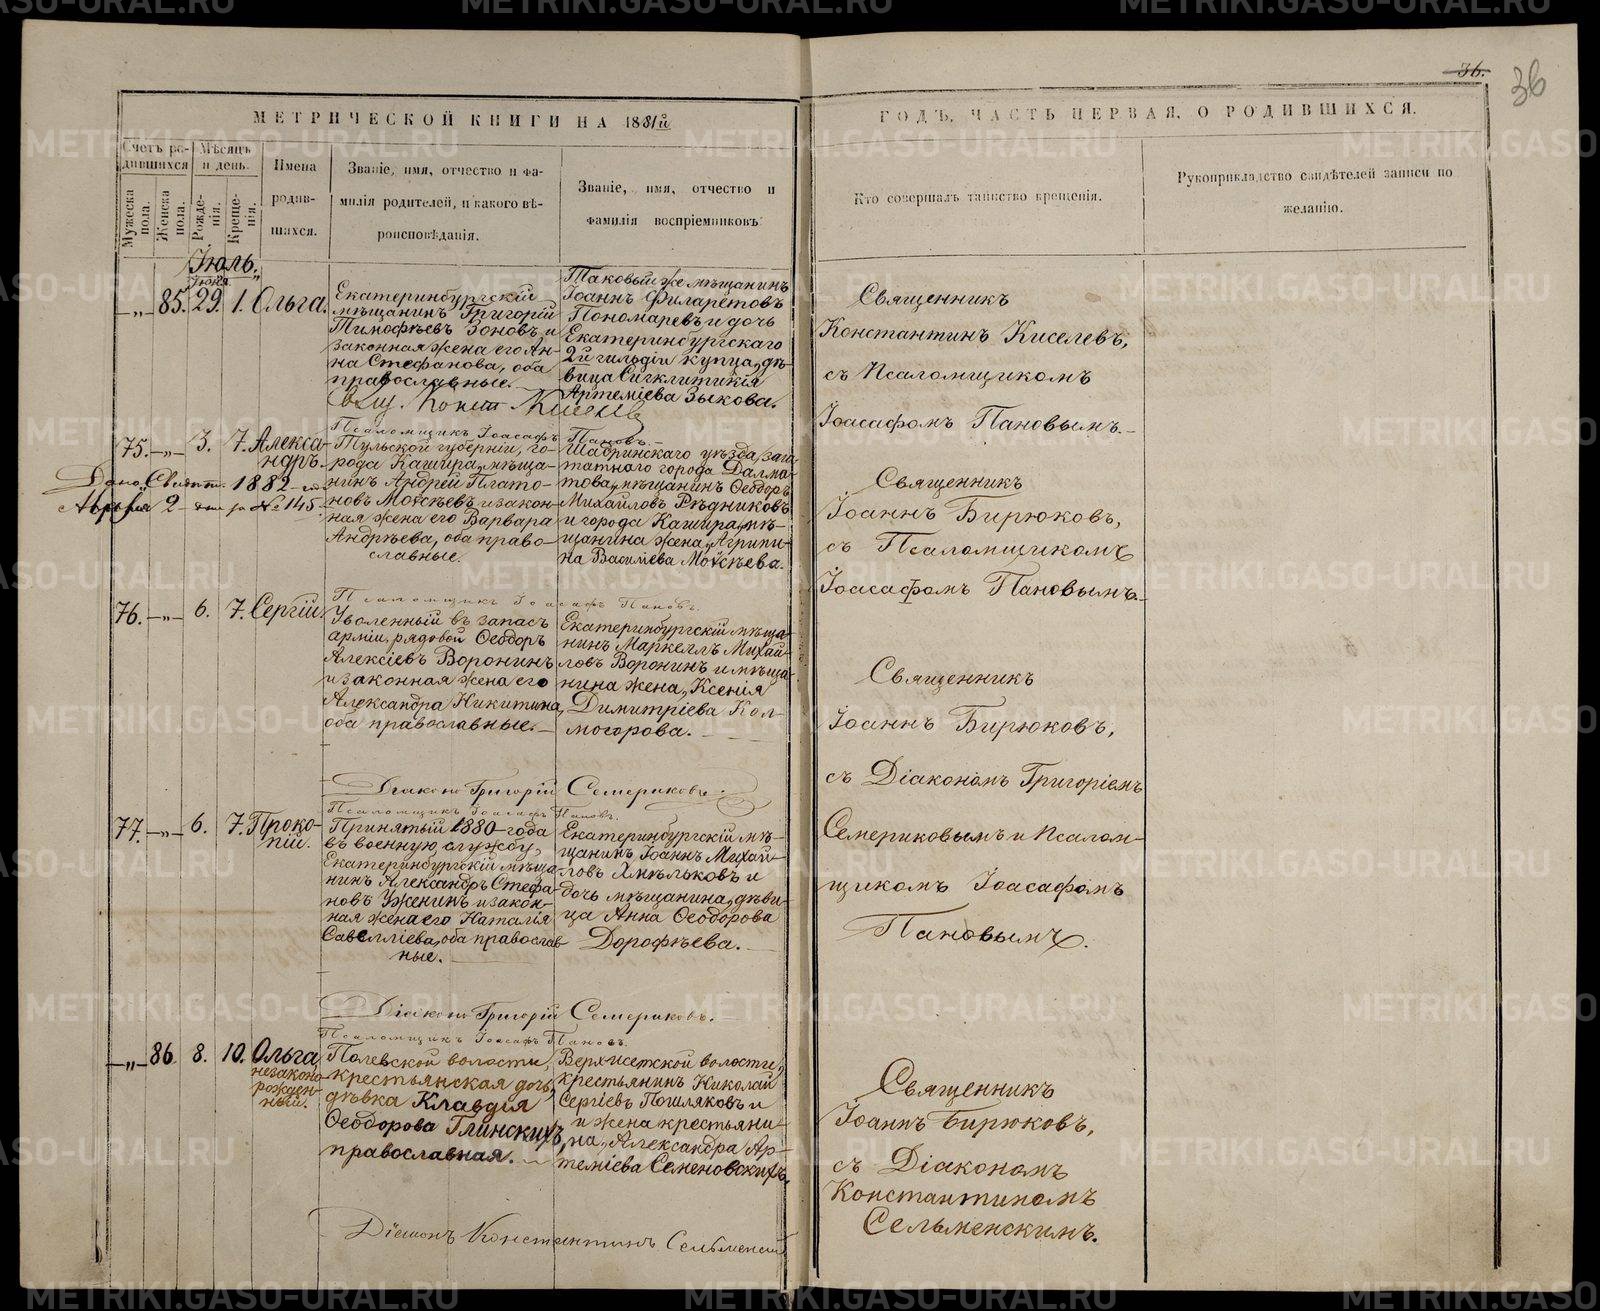 36.
36
МЕТРИЧЕСКОЙ КНИГИ НА 1881й
ГОДЪ, ЧАСТЬ ПЕРВАЯ, О РОДИВШИХСЯ.
Счетъ ро-
дившихся
Мѣсяцъ
и день.
Мужеска
пола.
Женска
пола.
Рожде-
нія.
Креще-
нія.
Имена
родив-
шихся.
Званіе, имя, отчество и фа-
милія родителей, и какого вѣ-
роисповѣданія.
Званіе, имя, отчество и
фамилія воспріемниковъ
Кто совершалъ таинство крещенія.
Рукоприкладство свидѣтелей записи по
желанію.
Іюль.
Іюня
„ 85. 29. 1. Ольга.
Екатеринбургскій
мѣщанинъ Григорій
Тимофѣевъ Зоновъ и
законная жена его Ан-
на Стефанова, оба
православные.
Таковый же мѣщанинъ
Іоаннъ Филаретовъ
Пономаревъ и дочь
Екатеринбургскаго
2й гильдіи купца, дѣ-
вица Сигклитикія
Артеміева Зыкова.
Священникъ
Константинъ Киселевъ,
съ Псаломщикомъ
Іоасафомъ Пановымъ.
Псаломщикъ Іоасафъ Пановъ.
75. „ 3. 7. Алекса-
ндръ.
Дано Свидѣт. 1882-го
Апрѣля 2 дня за № 145
Тульской губерніи, го-
рода Кашира, мѣща-
нинъ Андрей Плато-
новъ Моисѣевъ и закон-
ная жена его Варвара
Андрѣева, оба право-
славные.
Шадринскаго уѣзда, заш-
татнаго города Далма-
това, мѣщанинъ Ѳеодоръ
Михайловъ Рѣдниковъ
и города Кашира, мѣ-
щанина жена, Агриппи-
на Василіева Моисѣева.
Священникъ
Іоаннъ Бирюковъ,
съ Псаломщикомъ
Іоасафомъ Пановымъ.
Псаломщикъ Іоасафъ Пановъ.
76. „ 6. 7. Сергій.
Уволенный въ запасъ
арміи, рядовой Ѳеодоръ
Алексіевъ Воронинъ
и законная жена его
Александра Никитина,
оба православные.
Екатеринбургскій мѣща-
нинъ Маркеллъ Михай-
ловъ Воронинъ и мѣща-
нина жена, Ксенія
Димитріева Кол-
могорова.
Священникъ
Іоаннъ Бирюковъ,
съ Діакономъ Григоріемъ
Семериковымъ и Псалом-
щикомъ Іоасафомъ
Пановымъ.
Діаконъ Григорій Семериковъ.
Псаломщикъ Іоасафъ Пановъ.
77. „ 6. 7. Проко-
пій.
Принятый 1880-года
въ военную службу,
Екатеринбургскій мѣща-
нинъ Александръ Стефа-
новъ Женинъ и закон-
ная жена его Наталія
Савелліева, оба православ-
ные.
Екатеринбургскій мѣ-
щанинъ Іоаннъ Михай-
ловъ Хмѣльковъ и
дочь мѣщанина, дѣви-
ца Анна Ѳеодорова
Дорофѣева.
Діаконъ Григорій Семериковъ.
Псаломщикъ Іоасафъ Пановъ.
„ 86. 8. 10. Ольга
незаконо-
рожден-
ный.
Полевской волости,
крестьянская дочь,
дѣвка Клавдія
Ѳеодорова Глинскихъ,
православная.
Верхисетской волости,
крестьянинъ Николай
Сергіевъ Пошляковъ и
и жена крестьяни-
на, Александра Ар-
теміева Семеновскихъ.
Священникъ
Іоаннъ Бирюковъ,
съ Діакономъ
Константиномъ
Сельменскимъ.
Діаконъ Константинъ Сельменскій